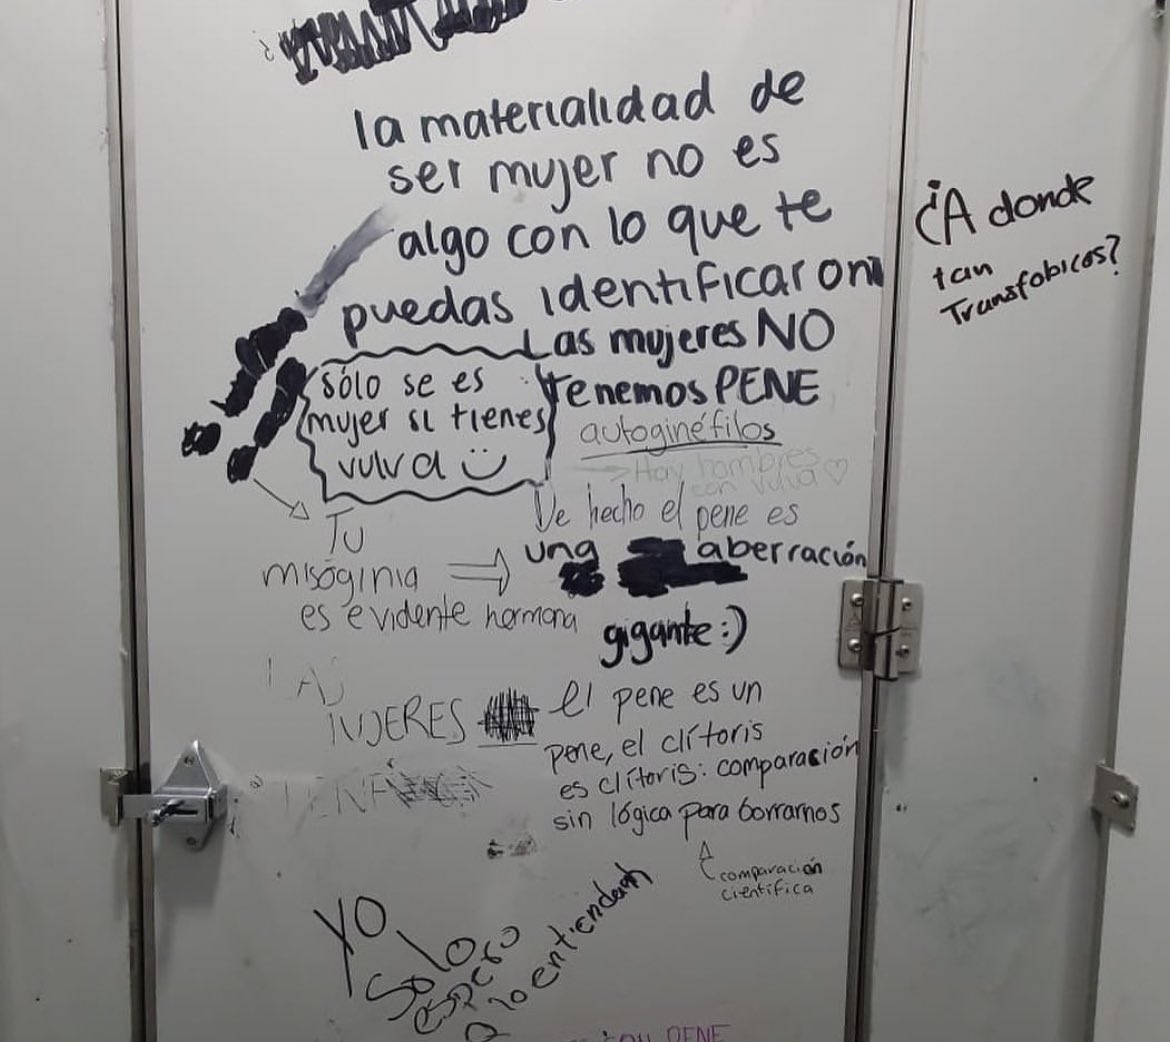 la materialidad de
ser mujer no es
algo con lo que te
puedas identificar
Las mujeres NO
tenemos PENE
sólo se es
mujer si tienes
vulva
autoginéfilos
Hay hombres
con vulva
De hecho el pene es
una aberración
gigante :)
Tu
misóginia
es evidente hermana
MUJERES
el pene es un
pene, el clítoris
es clítoris: comparación
sin lógica para borrarnos
comparación
científica
yo
solo
espero
q lo entiendan
PENE
¿A donde
tan
Transfobicos?